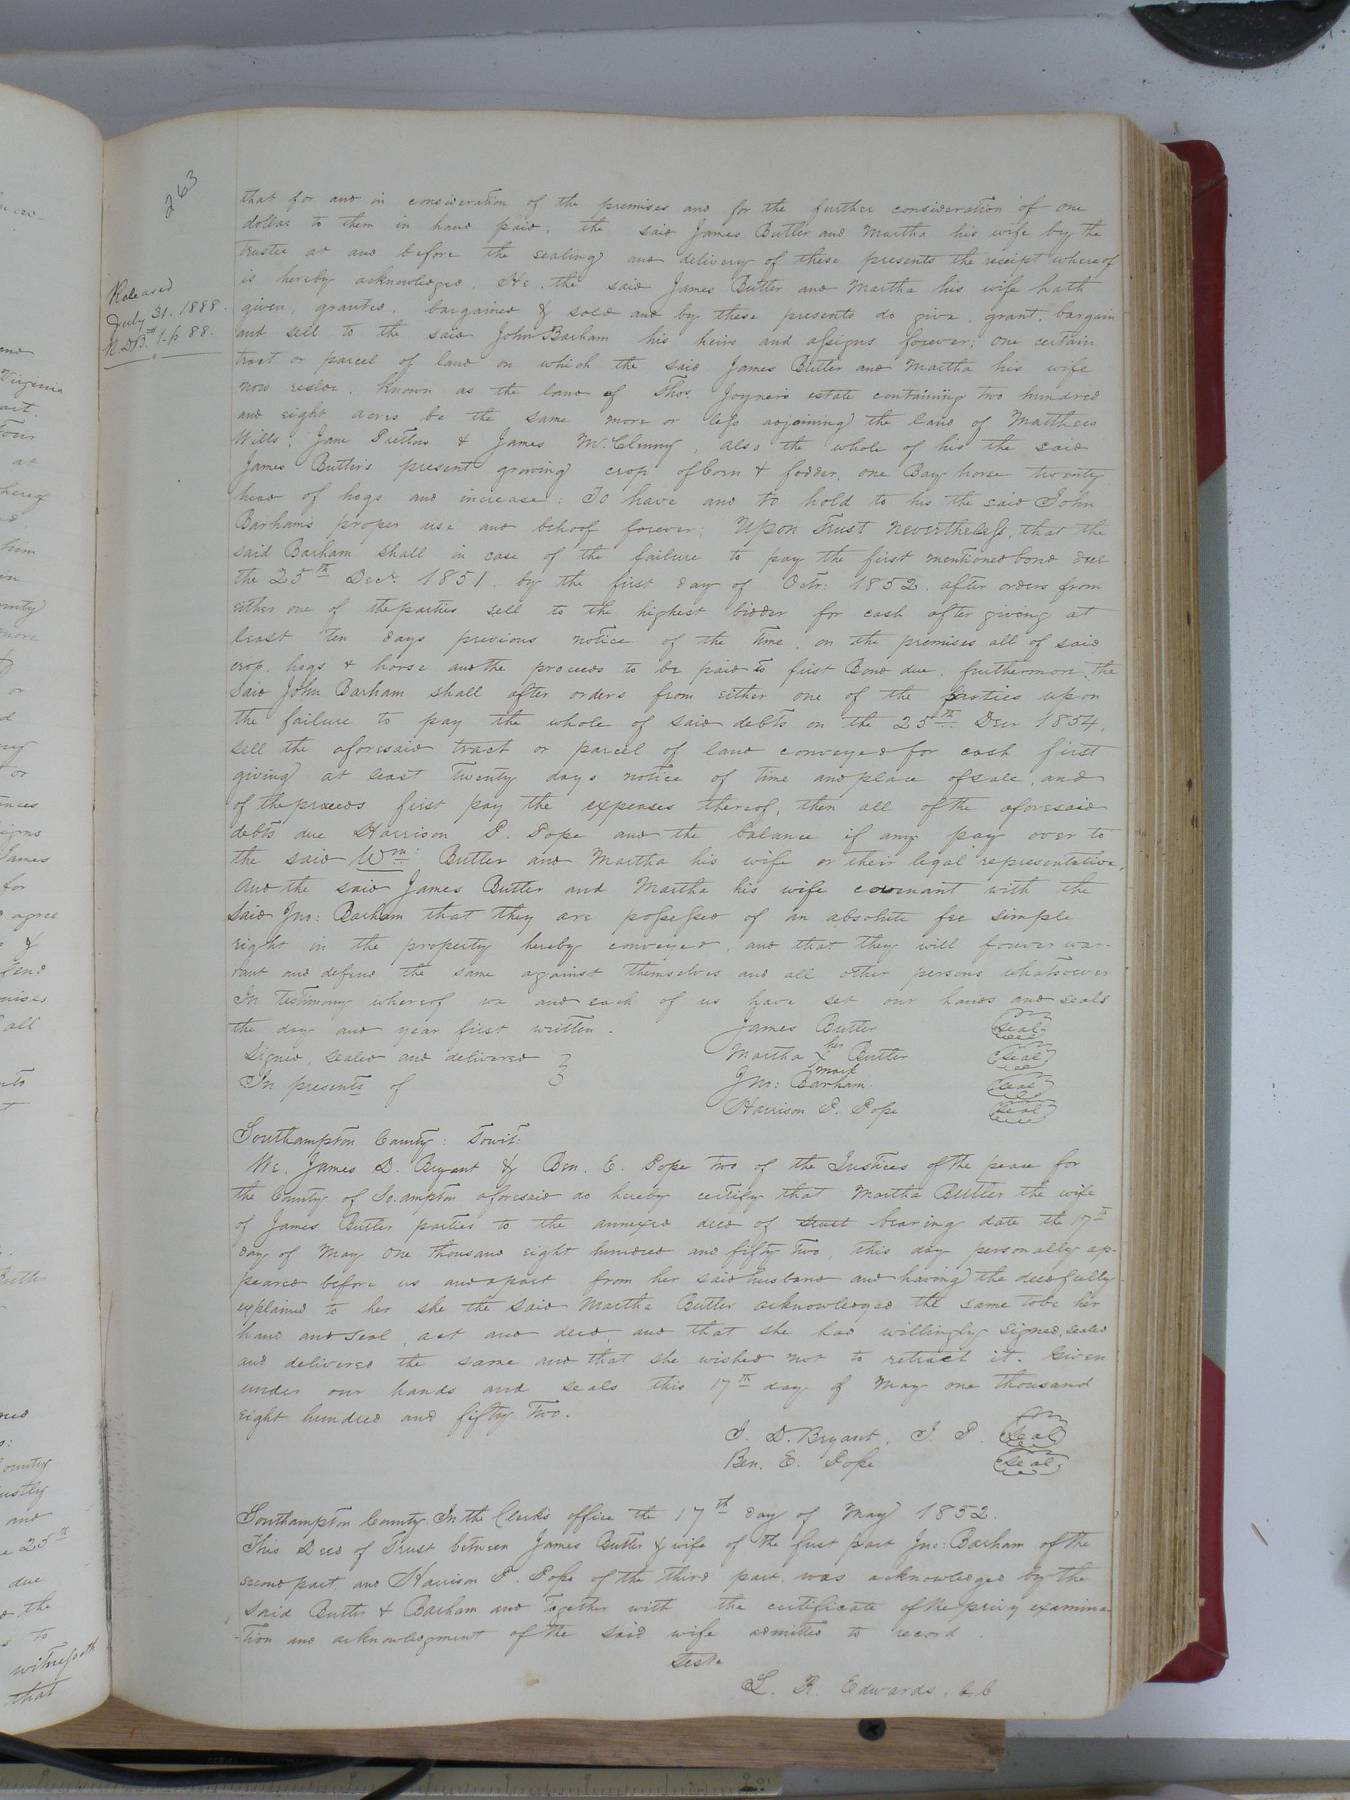 263
Released
July 31. 1888.
R. D B. 1. p 88.
that for and in consideration of the premises and for the further consideration of one
dollar to them in hand paid, the said James Butler and Martha his wife by the
trustee at and before the sealing and delivery of these presents the receipt whereof
is hereby acknowledged. He. the said James Butler and Martha his wife hath
given, granted, bargained & sold and by these presents do give, grant, bargain
and sell to the said John Barham his heirs and assigns forever; one certain
tract or parcel of land on which the said James Butler and Martha his wife
now reside, known as the land of Thos. Joyner's estate containing two hundred
and eight acres be the same more or less adjoining the land of Matthew
Wills, Jane Pretlow & James McClenny, also the whole of his the said
James Butler's present growing crop of Corn & fodder, one Bay horse twenty
head of hogs and increase: To have and to hold to his the said John
Barham's proper use and behoof forever; Upon Trust nevertheless, that the
said Barham shall in case of the failure to pay the first mentioned bond due
the 25th Decr. 1851. by the first day of Octr: 1852. after orders from
either one of the parties sell to the highest bidder for cash after giving at
least ten days previous notice of the time, on the premises all of said
crop, hogs & horse and the proceeds to be paid to first Bond due, furthermore, the
said John Barham shall after orders from either one of the parties upon
the failure to pay the whole of said debts on the 25th Decr 1854,
sell the aforesaid tract or parcel of land conveyed for cash first
giving at least twenty days notice of time and place of sale, and
of the proceeds first pay the expenses thereof, then all of the aforesaid
debts due Harrison P. Pope and the balance if any pay over to
the said Wm. Butler and Martha his wife or their legal representative.
And the said James Butler and Martha his wife covenant with the
said Jno: Barham that they are possessed of an absolute fee simple
right in the property hereby conveyed, and that they will forever war-
rant and defend the same against themselves and all other persons whatsoever
In testimony whereof we and each of us have set our hands and seals
the day and year first written.
James Butler seal
Signed, sealed and delivered
Martha her X mark Butler seal
In presents of
Jno: Barham seal
Harrison P. Pope seal
Southampton County: Towit:
We, James D. Bryant & Ben. E. Pope two of the Justices of the peace for
the County of So.ampton aforesaid do hereby certify that Martha Butler the wife
of James Butler parties to the annexed deed of trust bearing date the 17th
day of May one thousand eight hundred and fifty two, this day personally ap-
peared before us and apart from her said husband and having the deed fully
explained to her she the said Martha Butler acknowledged the same to be her
hand and seal, act and deed, and that she had willingly signed, sealed
and delivered the same and that she wished not to retract it. Given
under our hands and seals this 17th day of May one thousand
eight hundred and fifty two.
J. D. Bryant, J. P. seal
Ben. E. Pope seal
Southampton County In the Clerk's office the 17th day of May 1852.
This Deed of Trust between James Butler & wife of the first part Jno: Barham of the
second part, and Harrison P. Pope of the third part, was acknowledged by the
said Butler & Barham and together with the certificate of the privy examina
-tion and acknowledgment of the said wife admitted to record.
Teste
L. R. Edwards, c.c